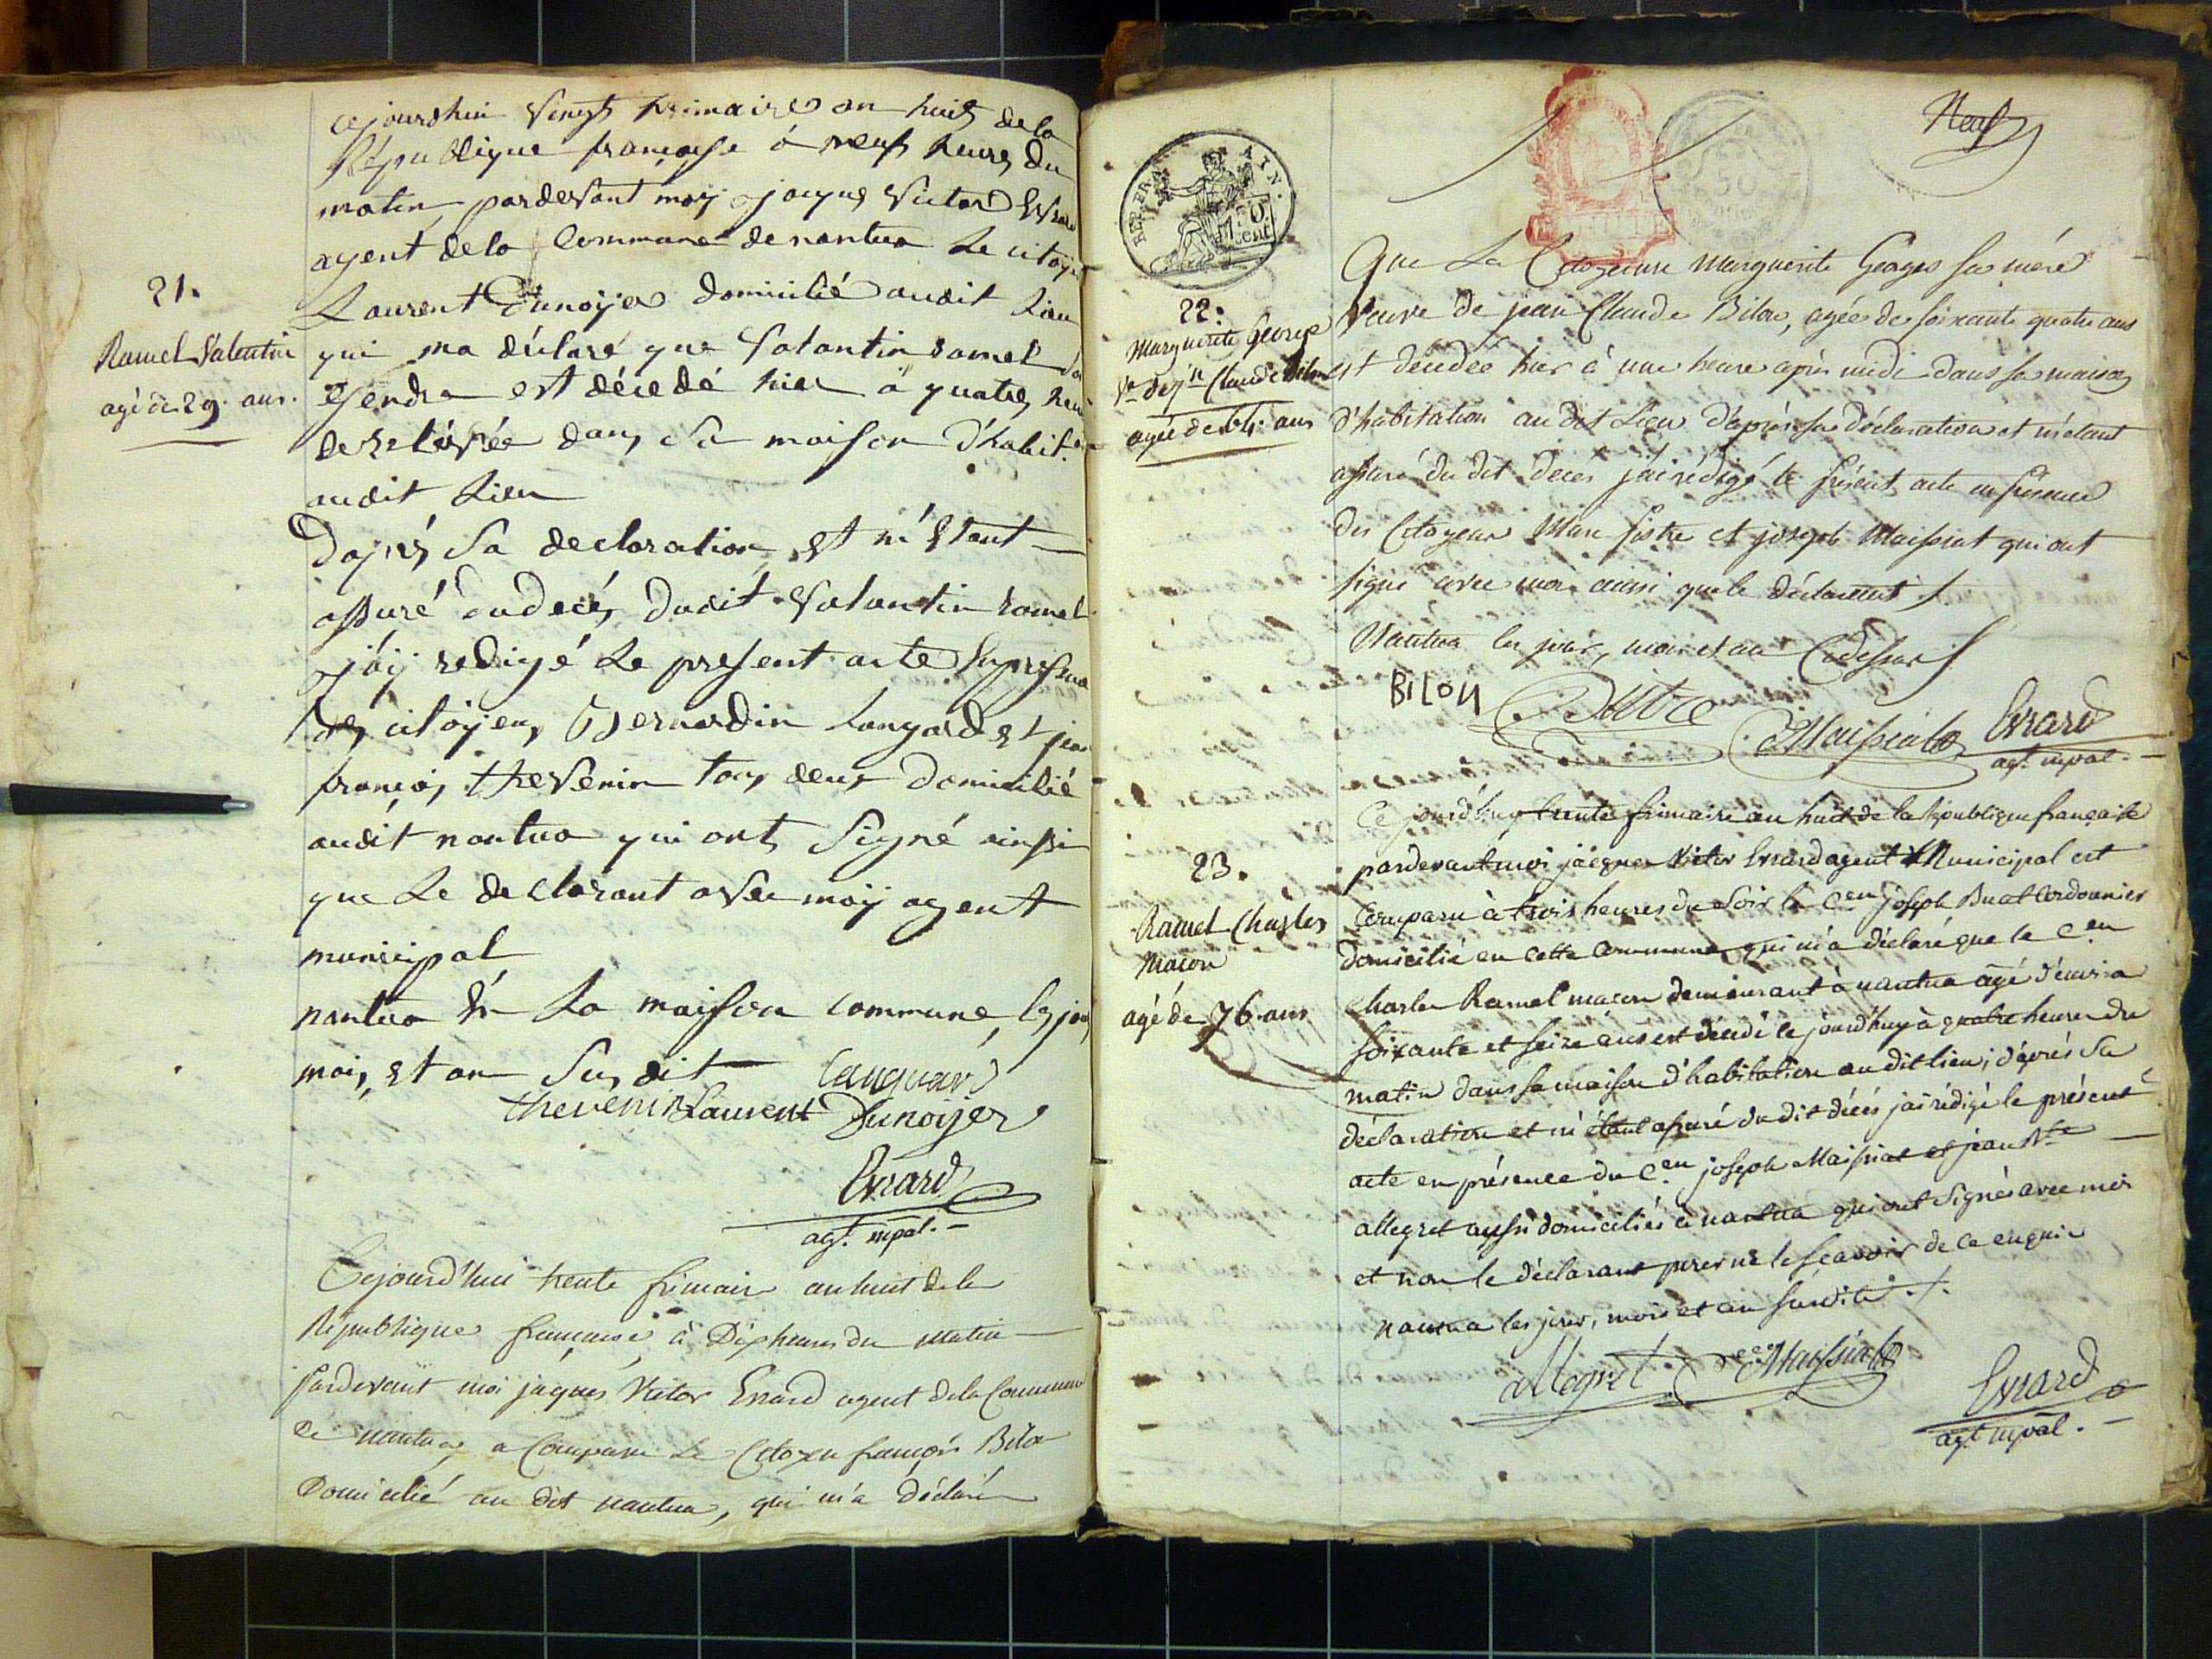 cejourdhui vingt frimaire an huit de la
République françoise à neuf heures du
matin pardevant moy jaques Victor Evrard
agent de la Commune de nantua Le citoyen
Laurent Dunoyer domicilié audit Lieu
qui ma déclaré que Valantin ramel son
gendre est décedé hier à quatre heures
de relévée dans Sa maison d'habit.on
audit Lieu
21.
Ramel Valentin
agé de 29. ans.
Daprès Sa declaration et m'Etant
assuré du decés dudit Valantin ramel
j'áy redigé Le present acte En presence
des citoyens Bernardin Langard et jean
françois thevenin tous deux Domicilié
audit nantua qui ont Signé ainssi
que Le declarant avec moy agent
municipal
nantua En La maison commune les jour
mois et an Susdit
Languard
thevenin Laurent Dunoyer
Evrard
agt. mpal.
Cejourd'hui trente frimaire an huit de la
République française à Dix heures du matin
Pardevant moi jaques Victor Evrard agent de la Commune
De nantua, a Comparu Le Citoyen françois Bilon
Domicilié au dit nantua, qui m'a déclaré
REP. FRA. AIN.
50 cent
Neuf
22.
Marguerite George
Ve de jn Claude Bilon
agée de 64. ans
Que La Citoyenne Marguerite Georges sa mère
Veuve de jean Claude Bilon, agée de soixante quatre ans
est décédée hier à une heure après midi dans sa maison
d'habitation au dit Lieu d'après sa déclaration et m'étant
assuré du dit décès j'ai rédigé le présent acte en présence
des Citoyens Marc et joseph Maissiat qui ont
signé avec moi ainsi que le déclarant
Nantua les jour, mois et an Cydessus
BILON
Maissiat Evrard
agt. mpal.
23.
Ramel Charles
Macon
agé de 76. ans
Ce jourd'huy trente frimaire an huit de la République française
pardevant moi jacques Victor Evrard agent Municipal est
Comparu à trois heures du Soir le Cen joseph Buat Cordonnier
domicilié en cette Commune, qui m'a déclaré que le Cen
Charles Ramel maçon demeurant à nantua agé d'environ
soixante et seize ans est décédé ce jourd'huy à quatre heures du
matin dans sa maison d'habitation au dit lieu; d'après Sa
déclaration et m'étant assuré du dit décés jai rédigé le présent
acte en présence du Cen joseph Maissiat et jean Bte
allegret aussi domiciliés à nantua qui ont Signés avec moi
et non le déclarant pour ne le sçavoir de ce enquis
nantua les jour, mois et an susdits ./.
allegret Maissiat
Evrard
agt mpal.